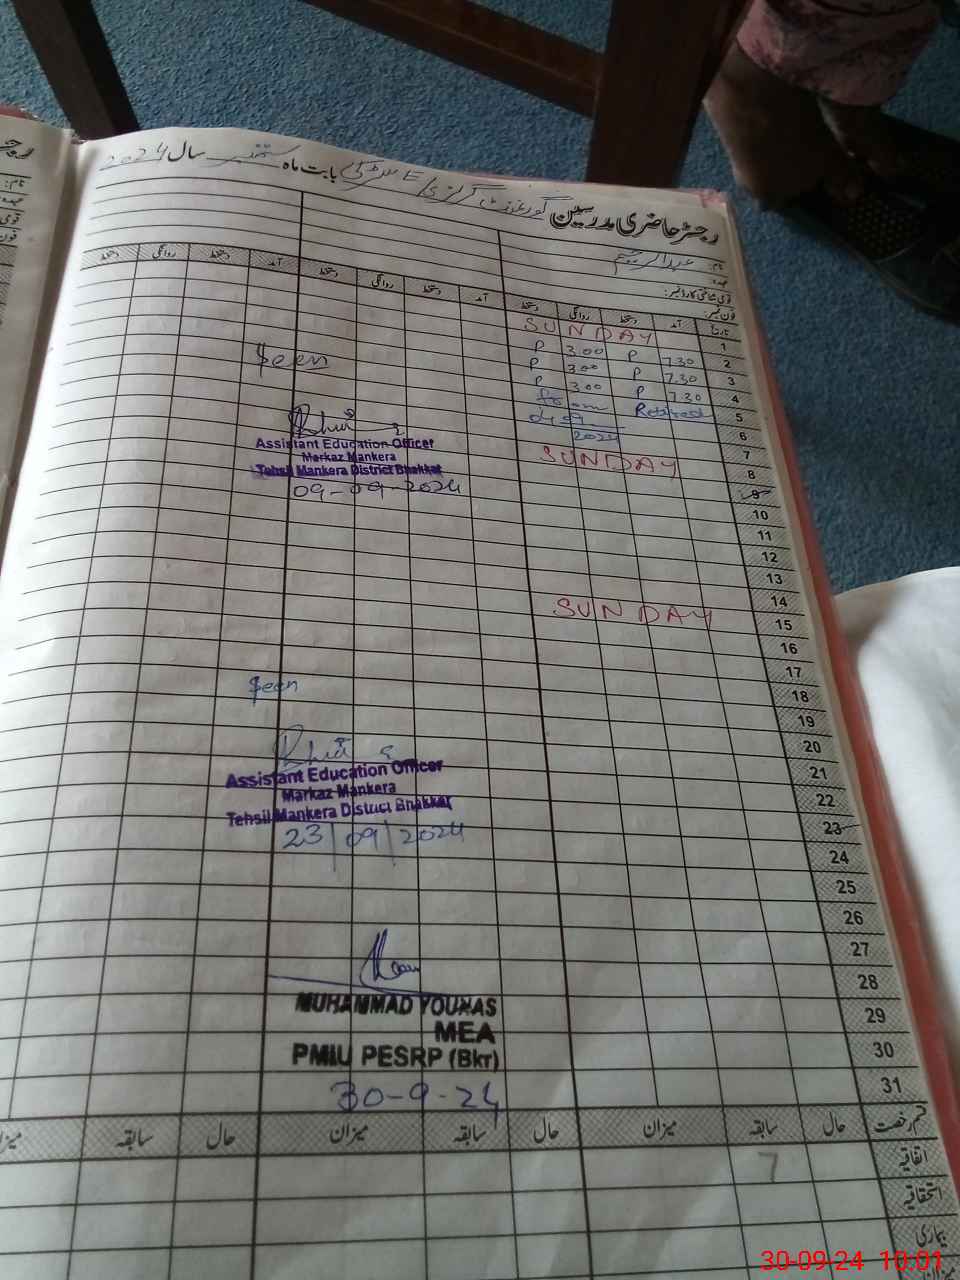 رجسٹر حاضری مدرسین گورنمنٹ گرلز بابت ماہ ستمبر سال 2024
نام: عبدالرحیم
عہدہ:
قومی شناختی کارڈ نمبر:
فون نمبر:
تاریخ آمد دستخط روانگی دستخط آمد دستخط روانگی دستخط آمد دستخط روانگی دستخط
1 SUNDAY
2 7.30 P 3.00 P
3 7.30 P 3.00 P
4 7.30 P 3.00 P
5 Retired from
6 04.09.2024
7
8 SUNDAY
9
10
11
12
13
14
15 SUNDAY
16
17
18
19
20
21
22
23
24
25
26
27
28
29
30
31
Seen
Assistant Education Officer
Markaz Mankera
Tehsil Mankera District Bhakkar
09-09-2024
Seen
Assistant Education Officer
Markaz Mankera
Tehsil Mankera District Bhakkar
23/09/2024
MUHAMMAD YOUNAS
MEA
PMIU PESRP (Bkr)
30-9-24
قسم رخصت حال سابقہ میزان حال سابقہ میزان حال سابقہ میزان
اتفاقیہ 7
استحقاقیہ
بیماری
میزان
30-09-24 10:01